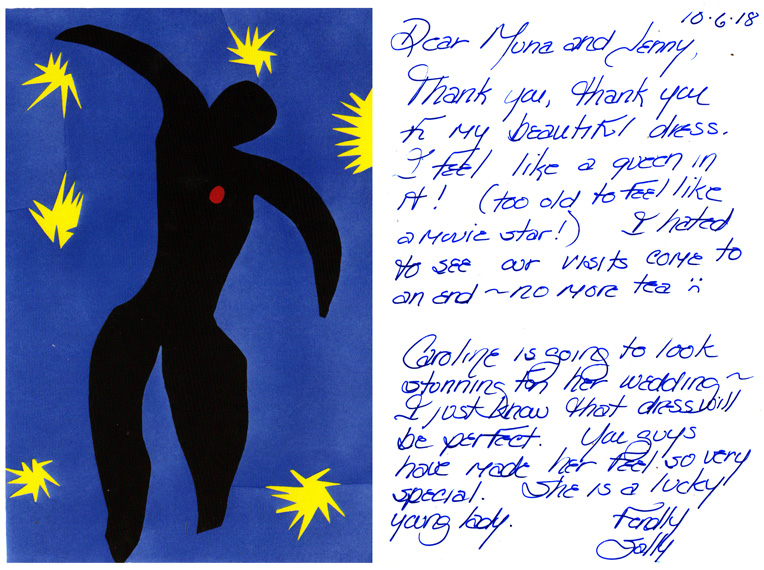 10·6·18
Dear Muna and Jenny,
Thank you, thank you
for my beautiful dress.
I feel like a queen in
it! (too old to feel like
a movie star!) I hated
to see our visits come to
an end ~ no more tea :(
Caroline is going to look
stunning for her wedding ~
I just know that dress will
be perfect. You guys
have made her feel so very
special. She is a lucky
young lady. Fondly
Sally